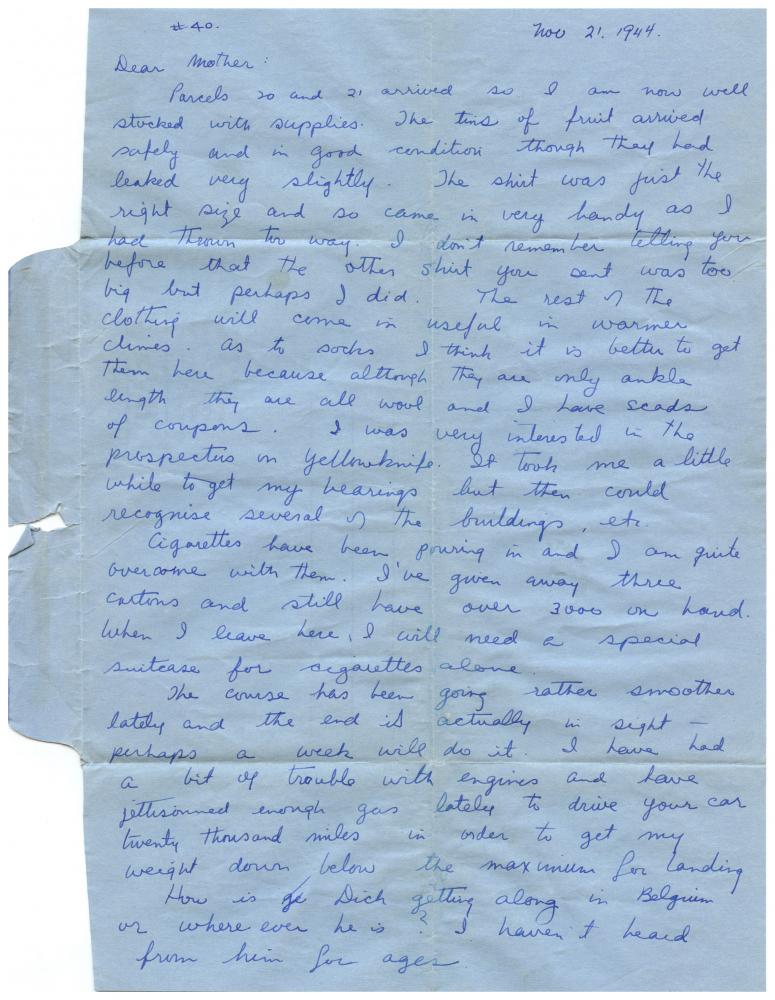 #40. Nov 21. 1944.
Dear Mother:
Parcels 20 and 21 arrived so I am now well
stocked with supplies. The tins of fruit arrived
safely and in good condition though they had
leaked very slightly. The shirt was just the
right size and so came in very handy as I
had thrown two way. I don't remember telling you
before that the other shirt you sent was too
big but perhaps I did. The rest of the
clothing will come in useful in warmer
climes. As to socks I think it is better to get
them here because although they are only ankle
length they are all wool and I have scads
of coupons. I was very interested in the
prospectus on Yellowknife. It took me a little
while to get my bearings but then could
recognise several of the buildings, etc.
Cigarettes have been pouring in and I am quite
overcome with them. I've given away three
cartons and still have over 3000 on hand.
When I leave here, I will need a special
suitcase for cigarettes alone.
The course has been going rather smoother
lately and the end is actually in sight —
perhaps a week will do it. I have had
a bit of trouble with engines and have
jettisonned enough gas lately to drive your car
twenty thousand miles in order to get my
weight down below the maximum for landing
How is Dick getting along in Belgium
or where ever he is? I haven't heard
from him for ages.